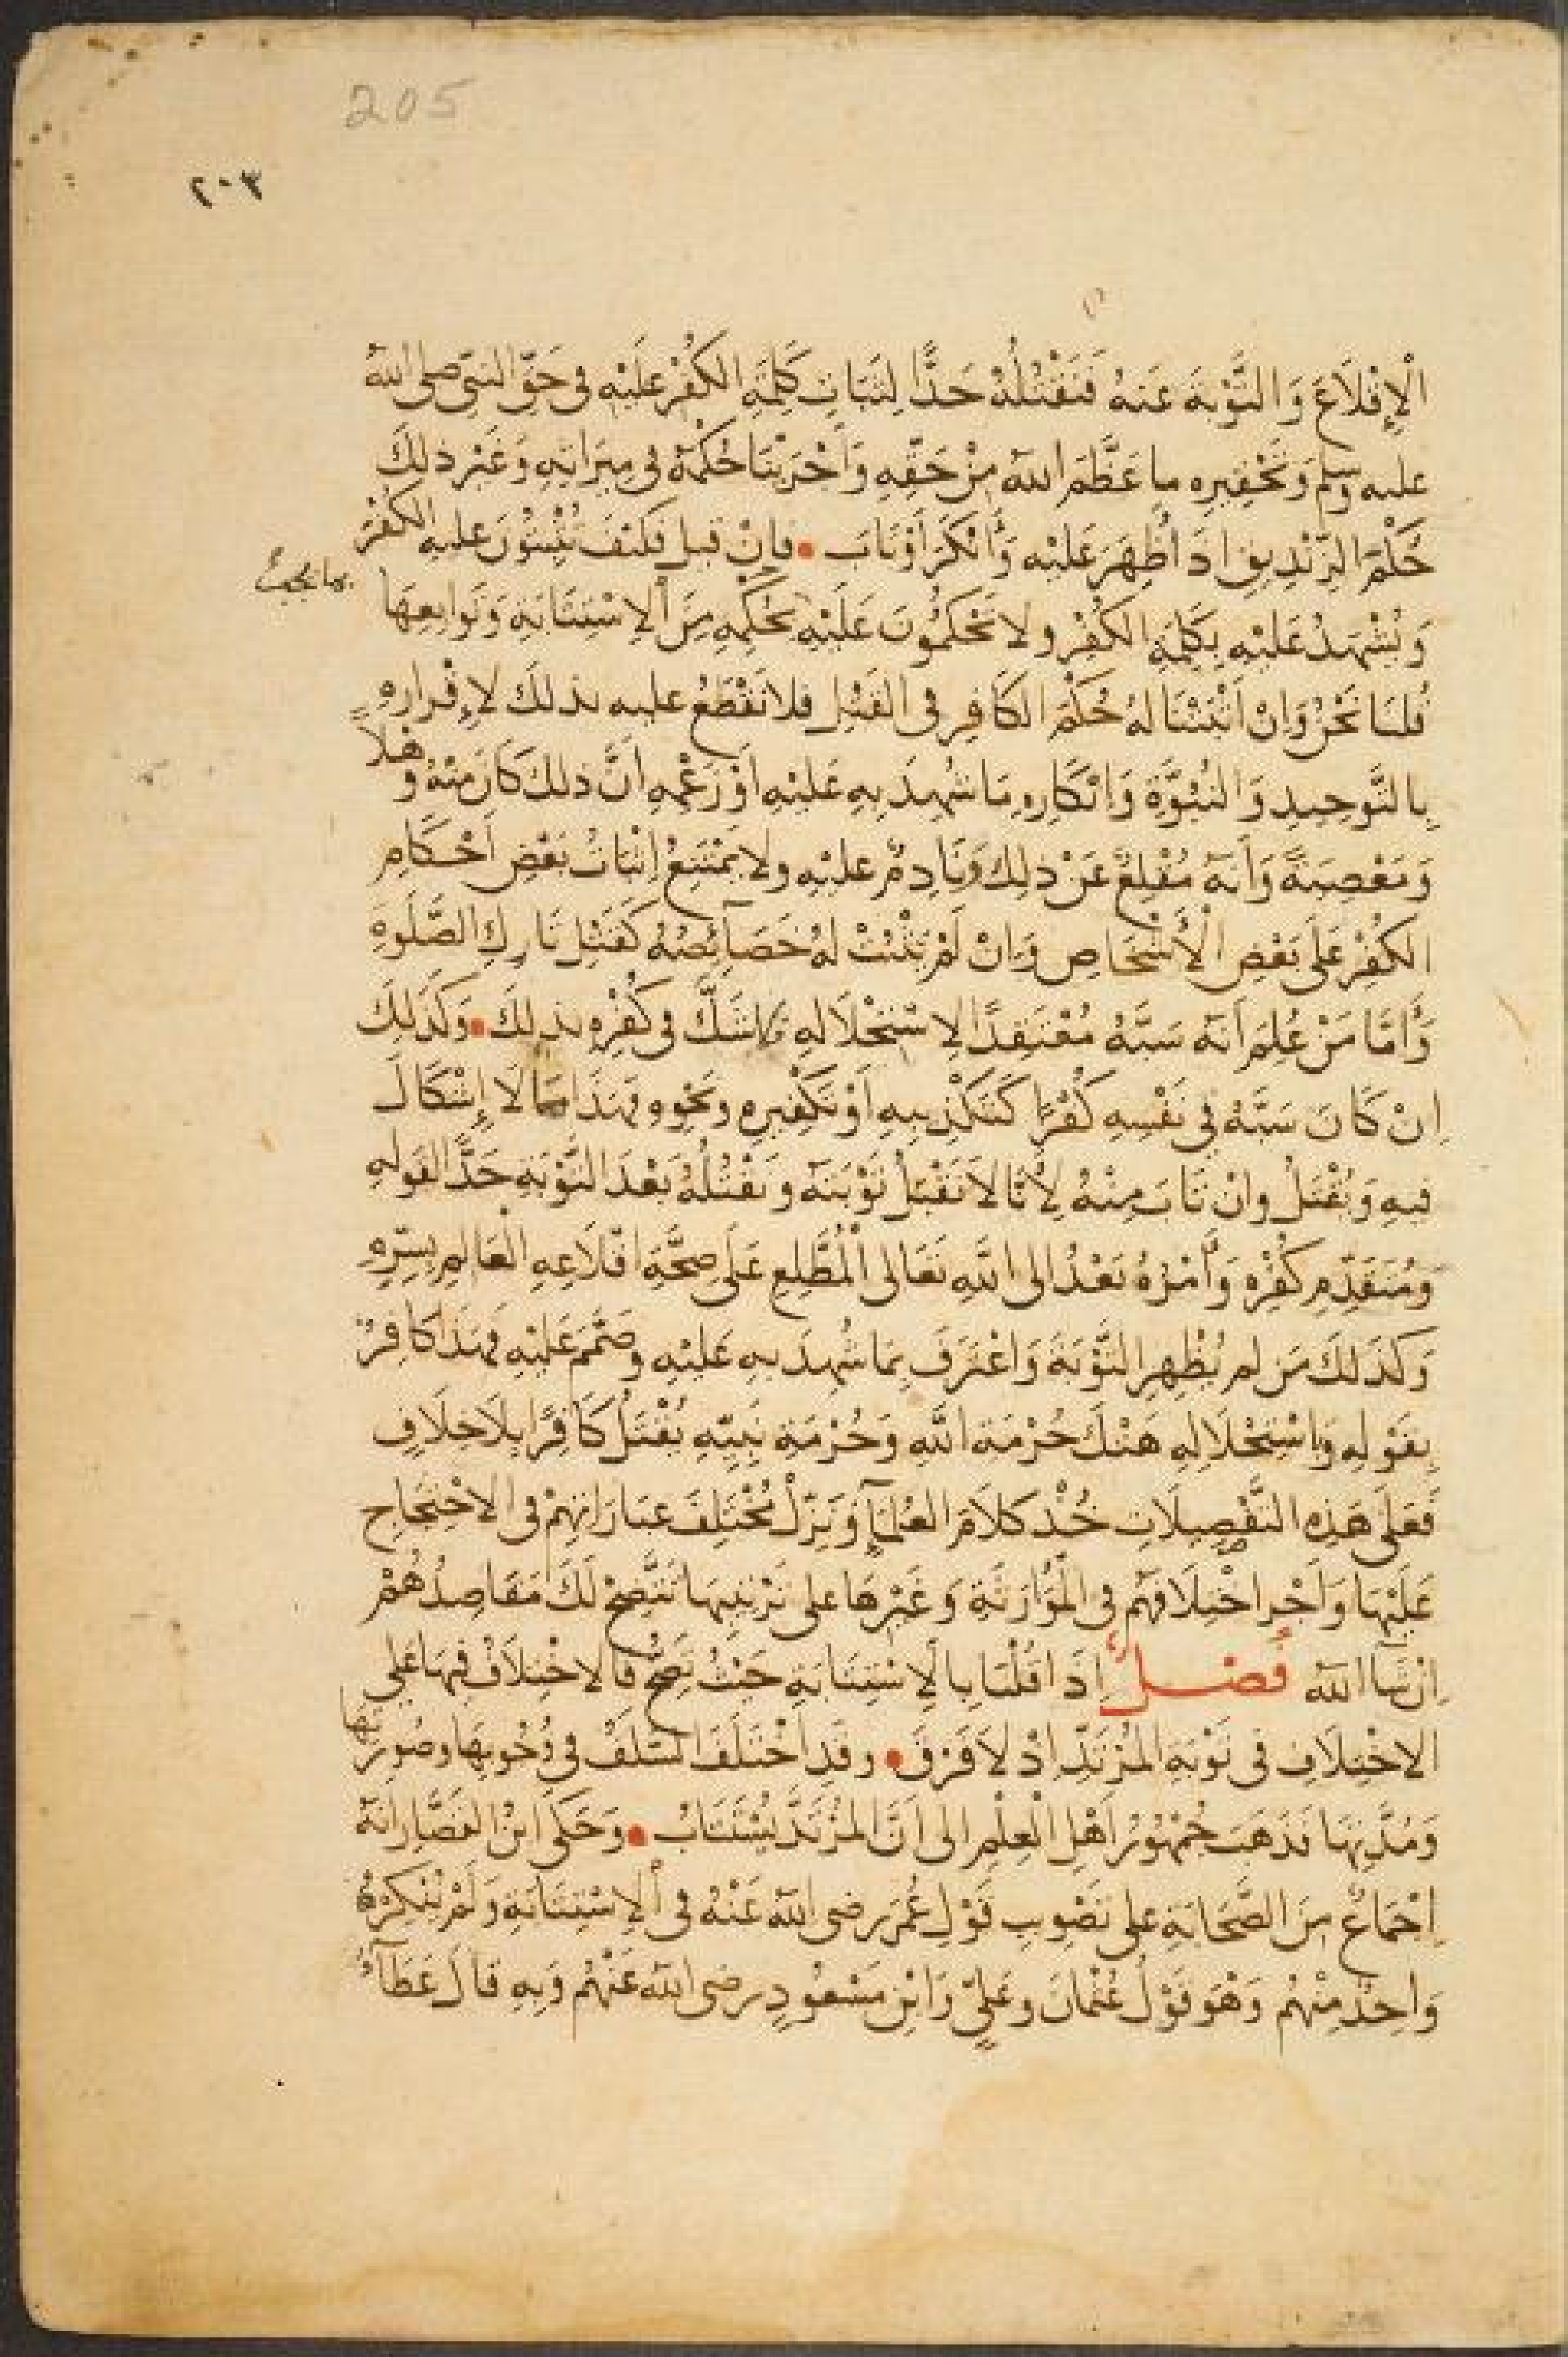 205
٢٠٣
الْإِقْلَاعَ وَالتَّوْبَةَ عَنهُ فَنَقْتُلُهُ حَدًّا لِثَبَاتِ كَلِمَةِ الكُفْرِ عَلَيْهِ فى حَقِّ النبىّ صلى الله
عليه وسلم وَتَحْقِيرِهِ ما عَظَّمَ اللهُ مِنْ حَقِّهِ وَأَجْرَيْنَا حُكْمَهُ فى مِيرَاثِهِ وَغَيْرِ ذلِكَ
حُكْمَ الزِّنْدِيقِ اذَا ظُهِرَ عَلَيْهِ وَأَنْكَرَ أَوْ تَابَ • فإِنْ قيل فَكَيْفَ تُثْبِتُوْنَ عليه الكُفْرَ
وَيُشْهَدُ عَلَيْهِ بِكَلِمَةِ الكُفْرِ ولا تَحْكُمُونَ عَلَيْهِ بِحُكْمِهِ مِنَ الِاسْتِتَابَةِ وَتَوَابِعِهَا
قُلنَا نَحْنُ وَانْ أَثْبَتْنَا لهُ حُكْمَ الكَافِرِ فى القَتْلِ فلا نَقْطَعُ عليه بذلكَ لإِقْرارِهِ
بِالتَّوحِيدِ وَالنُّبُوَّةِ وَانْكَارِهِ مَا شُهِدَ بِهِ عَلَيْهِ أَوْ زَعْمِهِ أَنَّ ذلكَ كَانَ مِنْهُ وهَلًا
وَمَعْصِيَةً وَأَنهُ مُقْلِعٌ عَنْ ذلِكَ وَنَادِمٌ عليْهِ ولا يَمْتَنِعُ إثْبَاتُ بَعْضِ أَحْكَامِ
الكُفْرِ عَلَى بَعْضِ الْأَشْخَاصِ وَانْ لَمْ يَثْبُتْ لهُ خَصَآئِصُهُ كَقَتْلِ تَارِكِ الصَّلَوةِ
وَأَمَّا مَنْ عُلِمَ أَنهُ سَبَّهُ مُعْتَقِدًا لِاسْتِحْلَالِهِ فلا شَكَّ فى كُفْرِهِ بذلِكَ • وَكَذلِكَ
اِنْ كَانَ سَبُّهُ فى نَفْسِهِ كُفْرًا كَتَكْذِيبِهِ أَوْ تَكْفِيرِهِ ونَحْوِهِ فَهَذَا مِمَّا لَا إِشْكَالَ
فيهِ وَيُقْتَلُ وانْ تَابَ مِنْهُ لِأَنّا لاَ نَقْبَلُ تَوْبَتَهُ وَنَقْتُلُهُ بَعْدَ التَّوْبَةِ حَدًّا لقَولهِ
وَمُتَقَدِّمِ كُفْرِهِ وَأَمْرُهُ بَعْدُ الى اللهِ تَعَالى الْمُطَّلِعِ عَلَى صِحَّةِ اقْلاَعِهِ الْعَالِمِ بِسِرِّهِ
وَكَذَلكَ مَن لم يُظْهِرِ التَّوْبَةَ وَاعْتَرَفَ بِمَا شُهِدَ بهِ عَلَيْهِ وصَمَّمَ عَلَيْهِ فهَذَا كَافِرٌ
بِقَوْلِهِ وَاسْتِحْلَالِهِ هَتْكَ حُرْمَةِ اللهِ وَحُرْمَةِ نَبِيِّهِ يُقْتَلُ كَافِرًا بِلَا خِلَافٍ
فَعَلَى هَذِهِ التَّفْصِيلَاتِ خُذْ كلاَمَ العُلمَآءِ وَنَزِّلْ مُخْتَلِفَ عبَارَاتِهِمْ فى الاحْتِجَاجِ
عَلَيْهَا وَأَجْرِ اخْتِلَافَهُمْ فى الْمُوَارَثَةِ وَغَيْرِهَا على تَرْتِيبِهَا تَتَّضِحْ لَكَ مَقَاصِدُهُمْ
اِنْ شَآ اللهُ فَصْل إذَا قُلْنَا بِالِاسْتِتَابَةِ حَيْثُ تَصِحُّ فَالاخْتِلاَفُ فِيهَا عَلى
الاخْتِلَافِ فى تَوْبَةِ المُرْتَدِّ إذْ لَا فَرْقَ • وقَدِ اخْتَلَفَ السّلَفُ فى وُجُوبِهَا وصُورَتِهَا
وَمُدَّتِهَا فذَهَبَ جُمْهُورُ أَهْلِ الْعِلْمِ الى أَنَّ المُرْتَدَّ يُسْتَتَابُ • وَحَكَى ابْنُ القَصَّارِ أنهُ
اِجْمَاعٌ مِنَ الصَّحَابَةِ على تَصْوِيبِ قَوْلِ عُمَرَ رضى اللهُ عَنْهُ فى الِاسْتِتَابَةِ وَلَمْ يُنْكِرْهُ
وَاحِدٌ مِنْهُم وَهْوَ قَوْلُ عُثْمانَ وعَلىٍّ وَابْنِ مَسْعُودٍ رضى الله عَنْهُم وَبِهِ قالَ عَطَآءُ